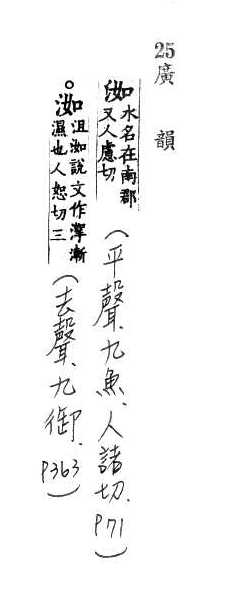 25廣韻
洳
水名在南郡
又人慮切
(平聲、九魚、人諸切. P71)
○洳
沮洳說文作漸
濕也人恕切三
(去聲、九御. P363)